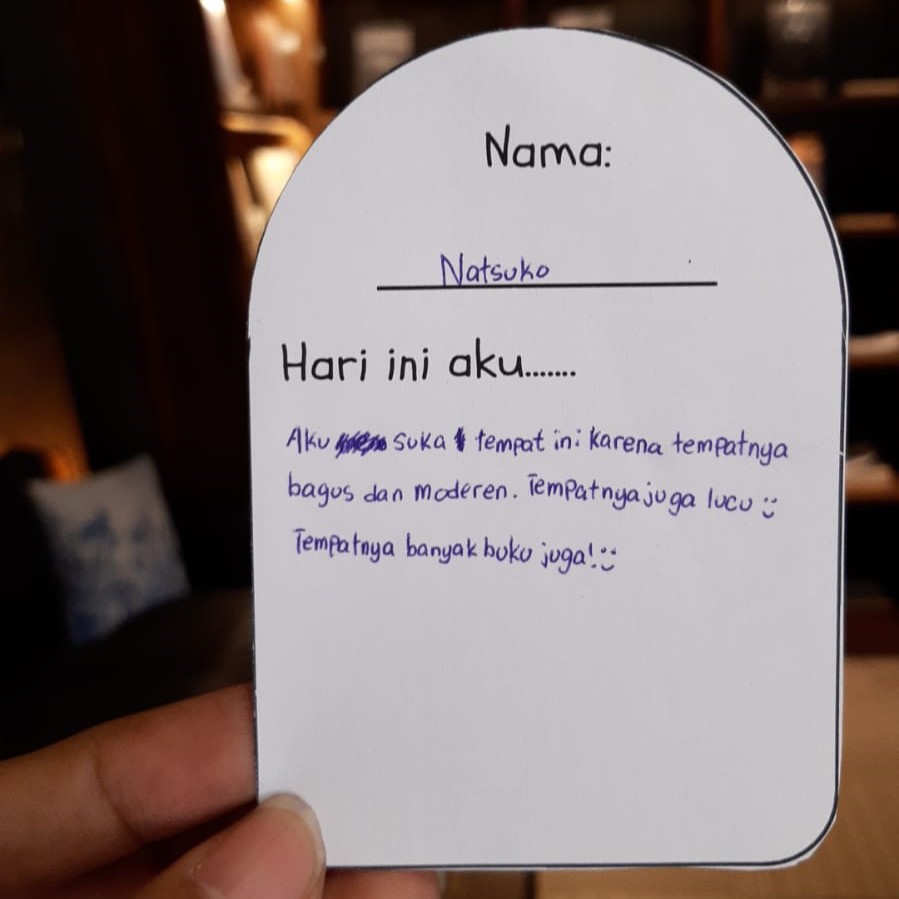 Nama:
Natsuko
Hari ini aku.......
Aku suka tempat ini karena tempatnya
bagus dan moderen. Tempatnya juga lucu :)
Tempatnya banyak buku juga! :)